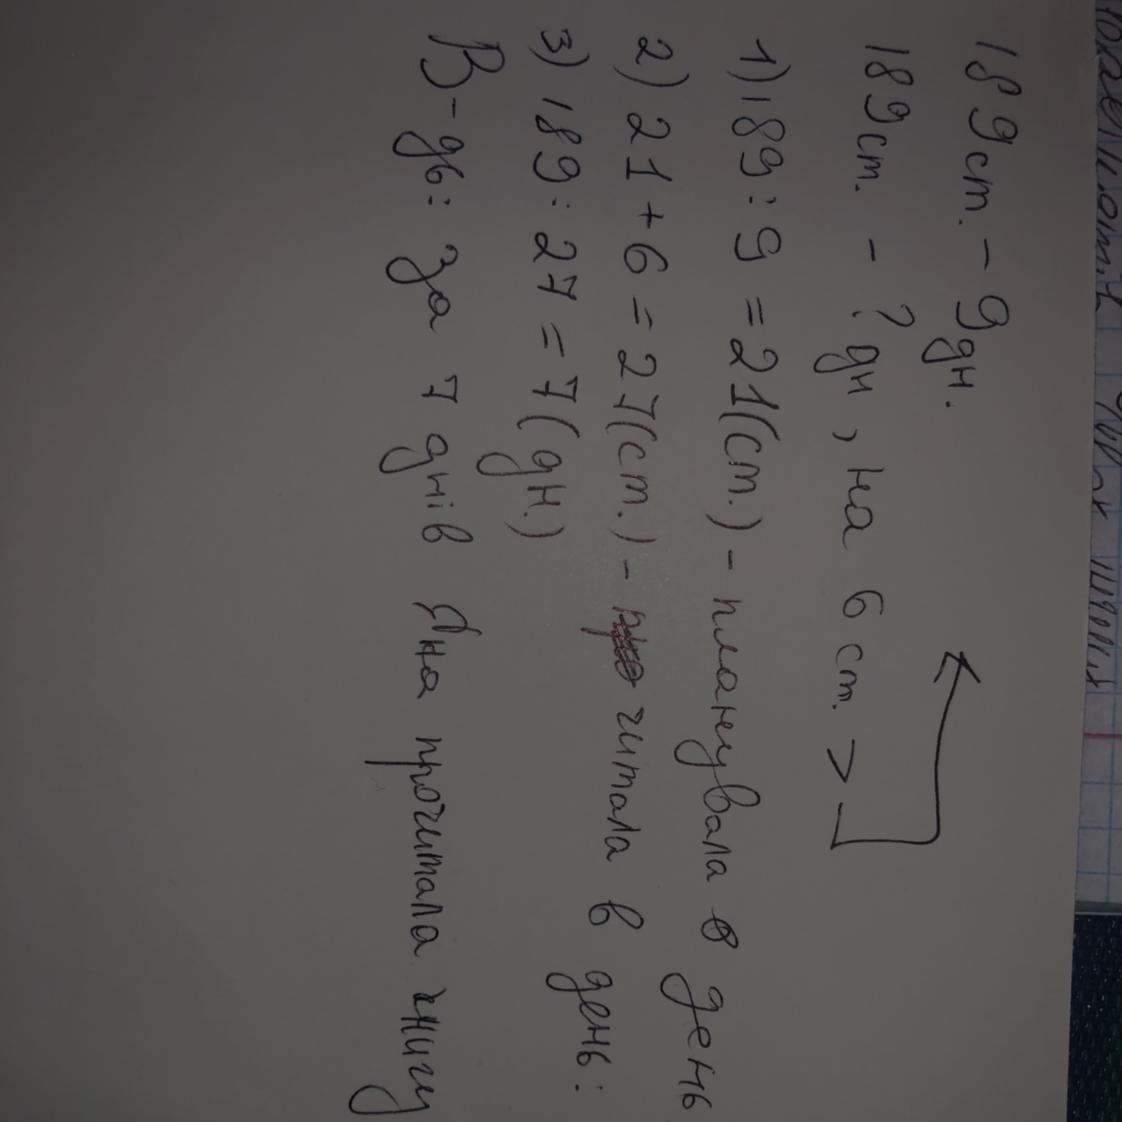 189ст. - 9дн.
189ст. - ? дн, на 6 ст. >
1) 189 : 9 = 21(ст.) - планувала в день
2) 21 + 6 = 27(ст.) - читала в день:
3) 189 : 27 = 7(дн.)
В-дь: за 7 днів Яна прочитала книгу